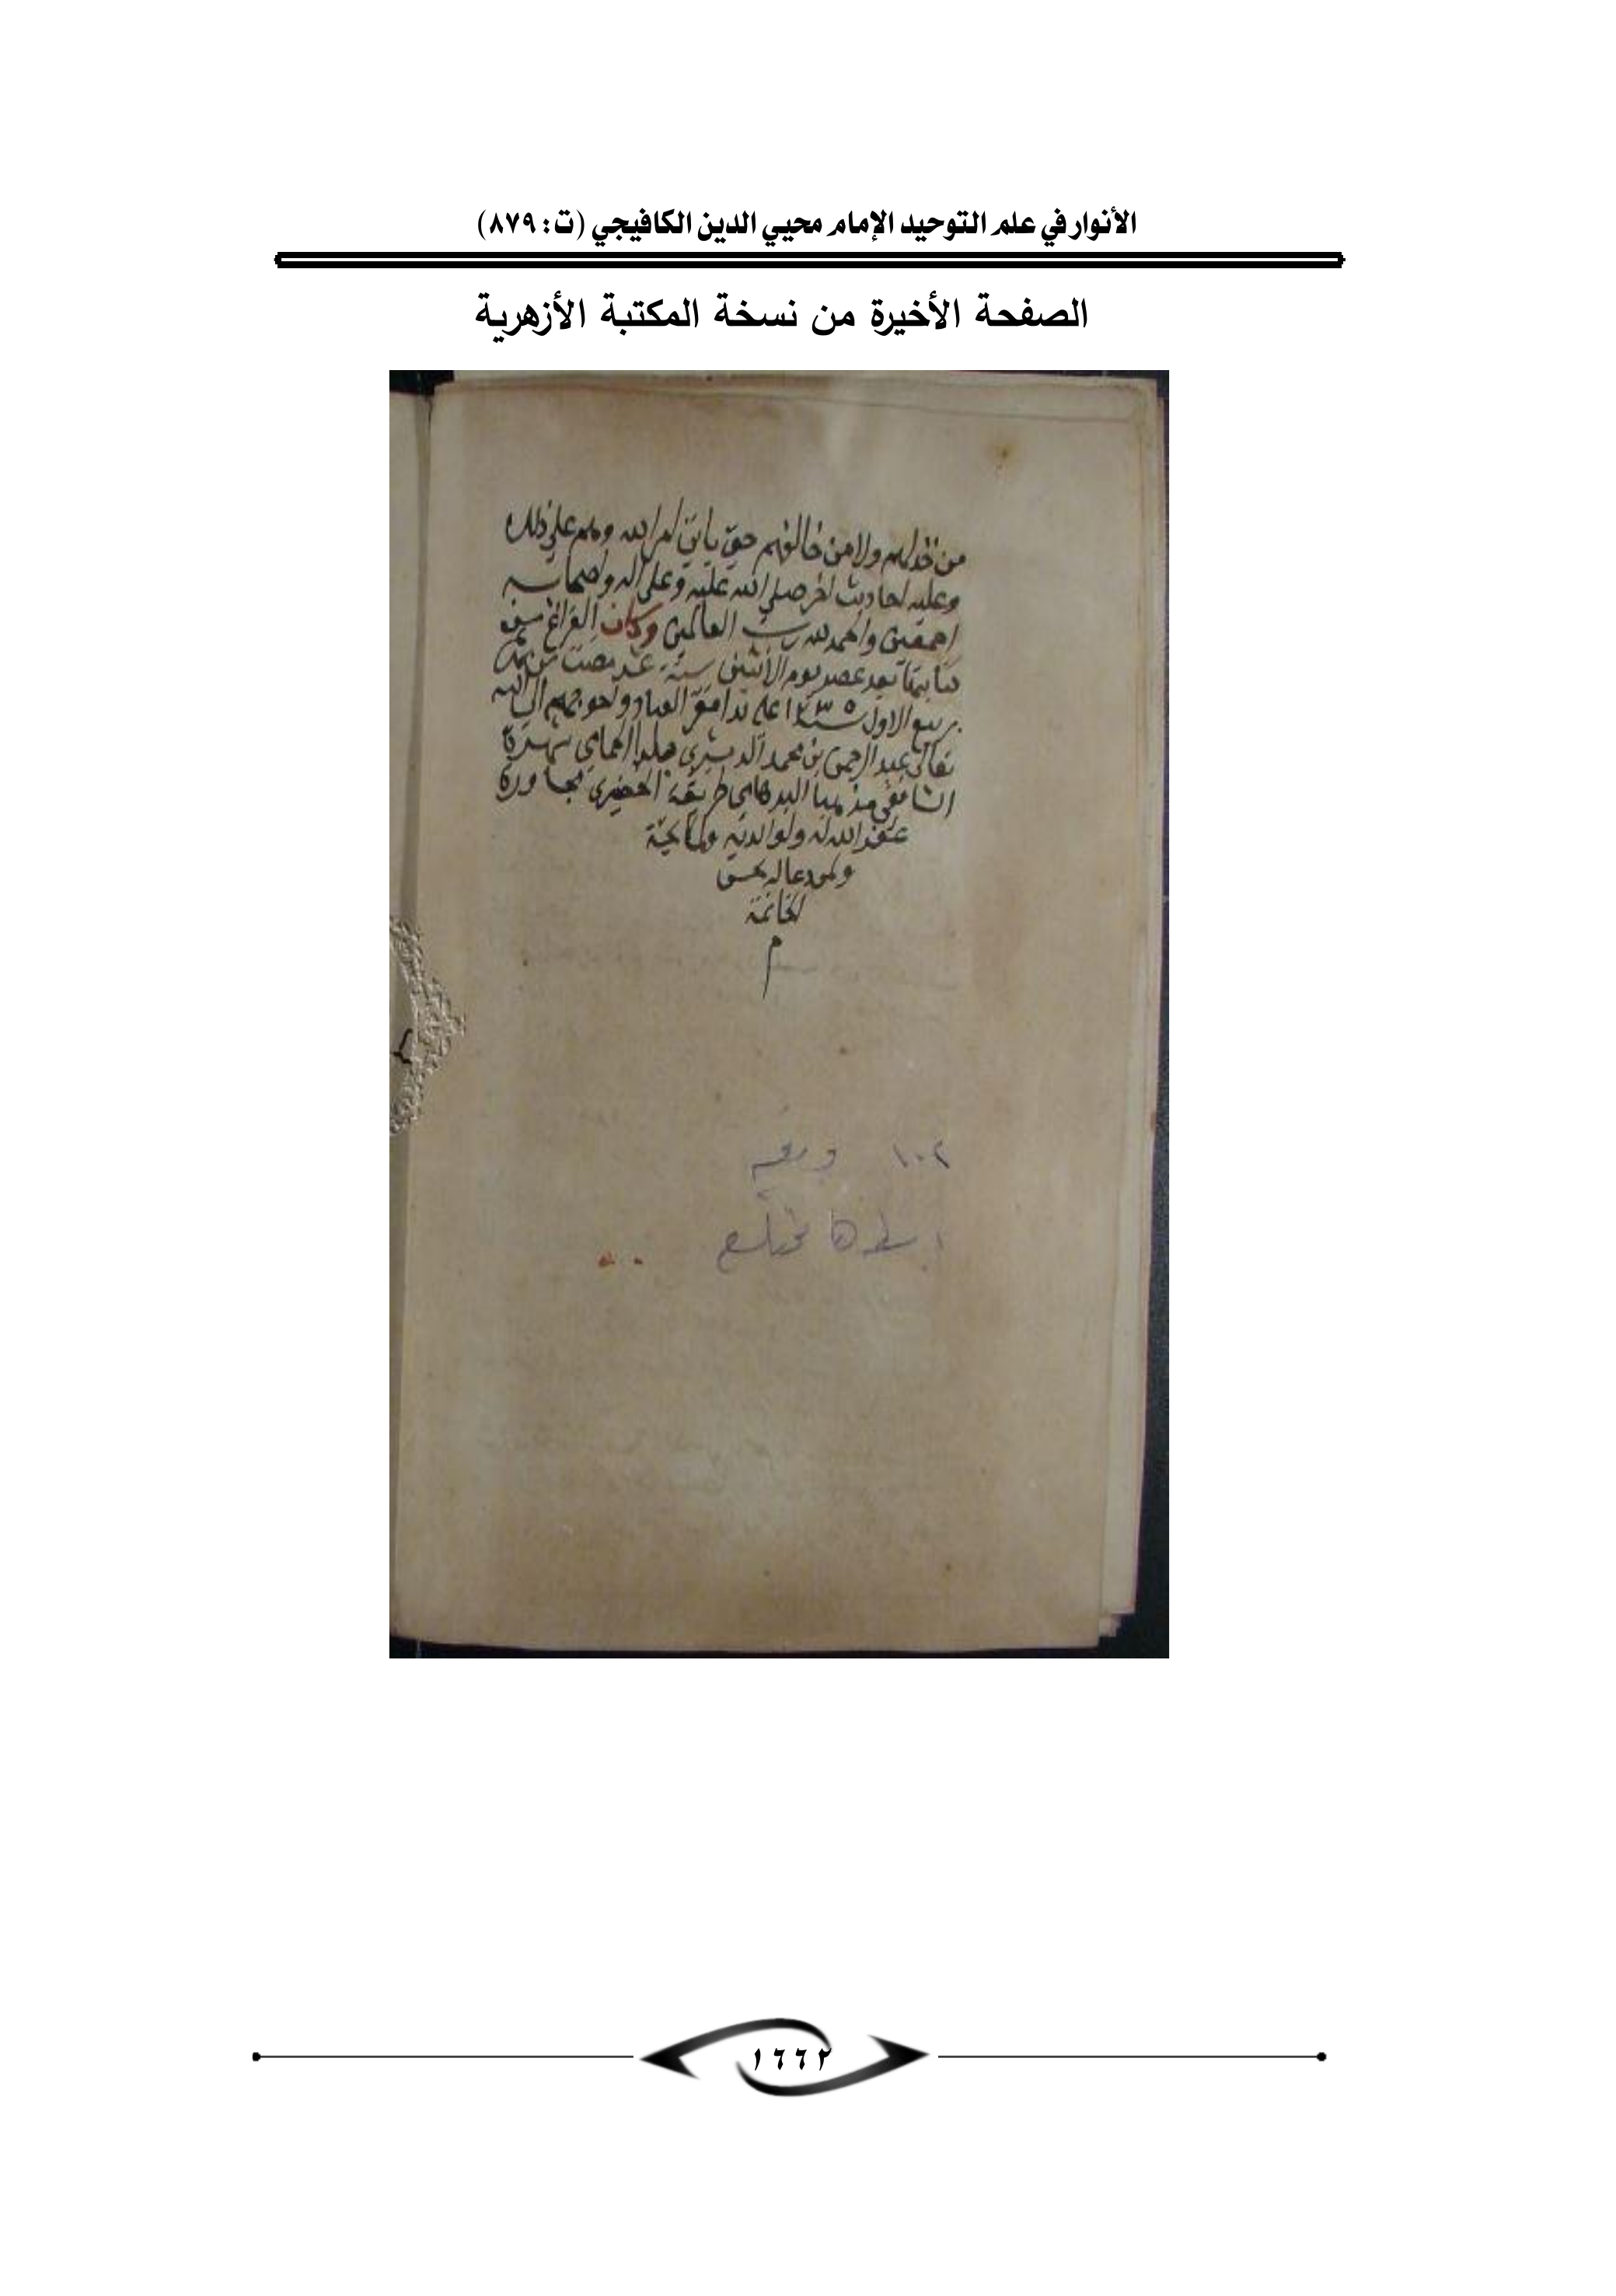 الأنوار في علم التوحيد الإمام محيي الدين الكافيجي (ت: ٨٧٩)
الصفحة الأخيرة من نسخة المكتبة الأزهرية
من خذلهم ولا من خالفهم حتى ياتي امر الله وهم على ذلك
وعليه احاديث اخر صلى الله عليه وعلى اله واصحابه
اجمعين والحمد لله رب العالمين وكان الفراغ من
كتابتها بعد عصر يوم الاثنين ستة عشر مضت من
ربيع الاول سنة ١٢٣٥ على يد افقر العباد واحوجهم الى الله
تعالى عبد الرحمن بن محمد شهرة
الشافعي مذهبا طريقة مجاورة
غفر الله له ولوالديه
ولمن دعا له بحسن
الخاتمة
م
١٠٢
١٦٦٢